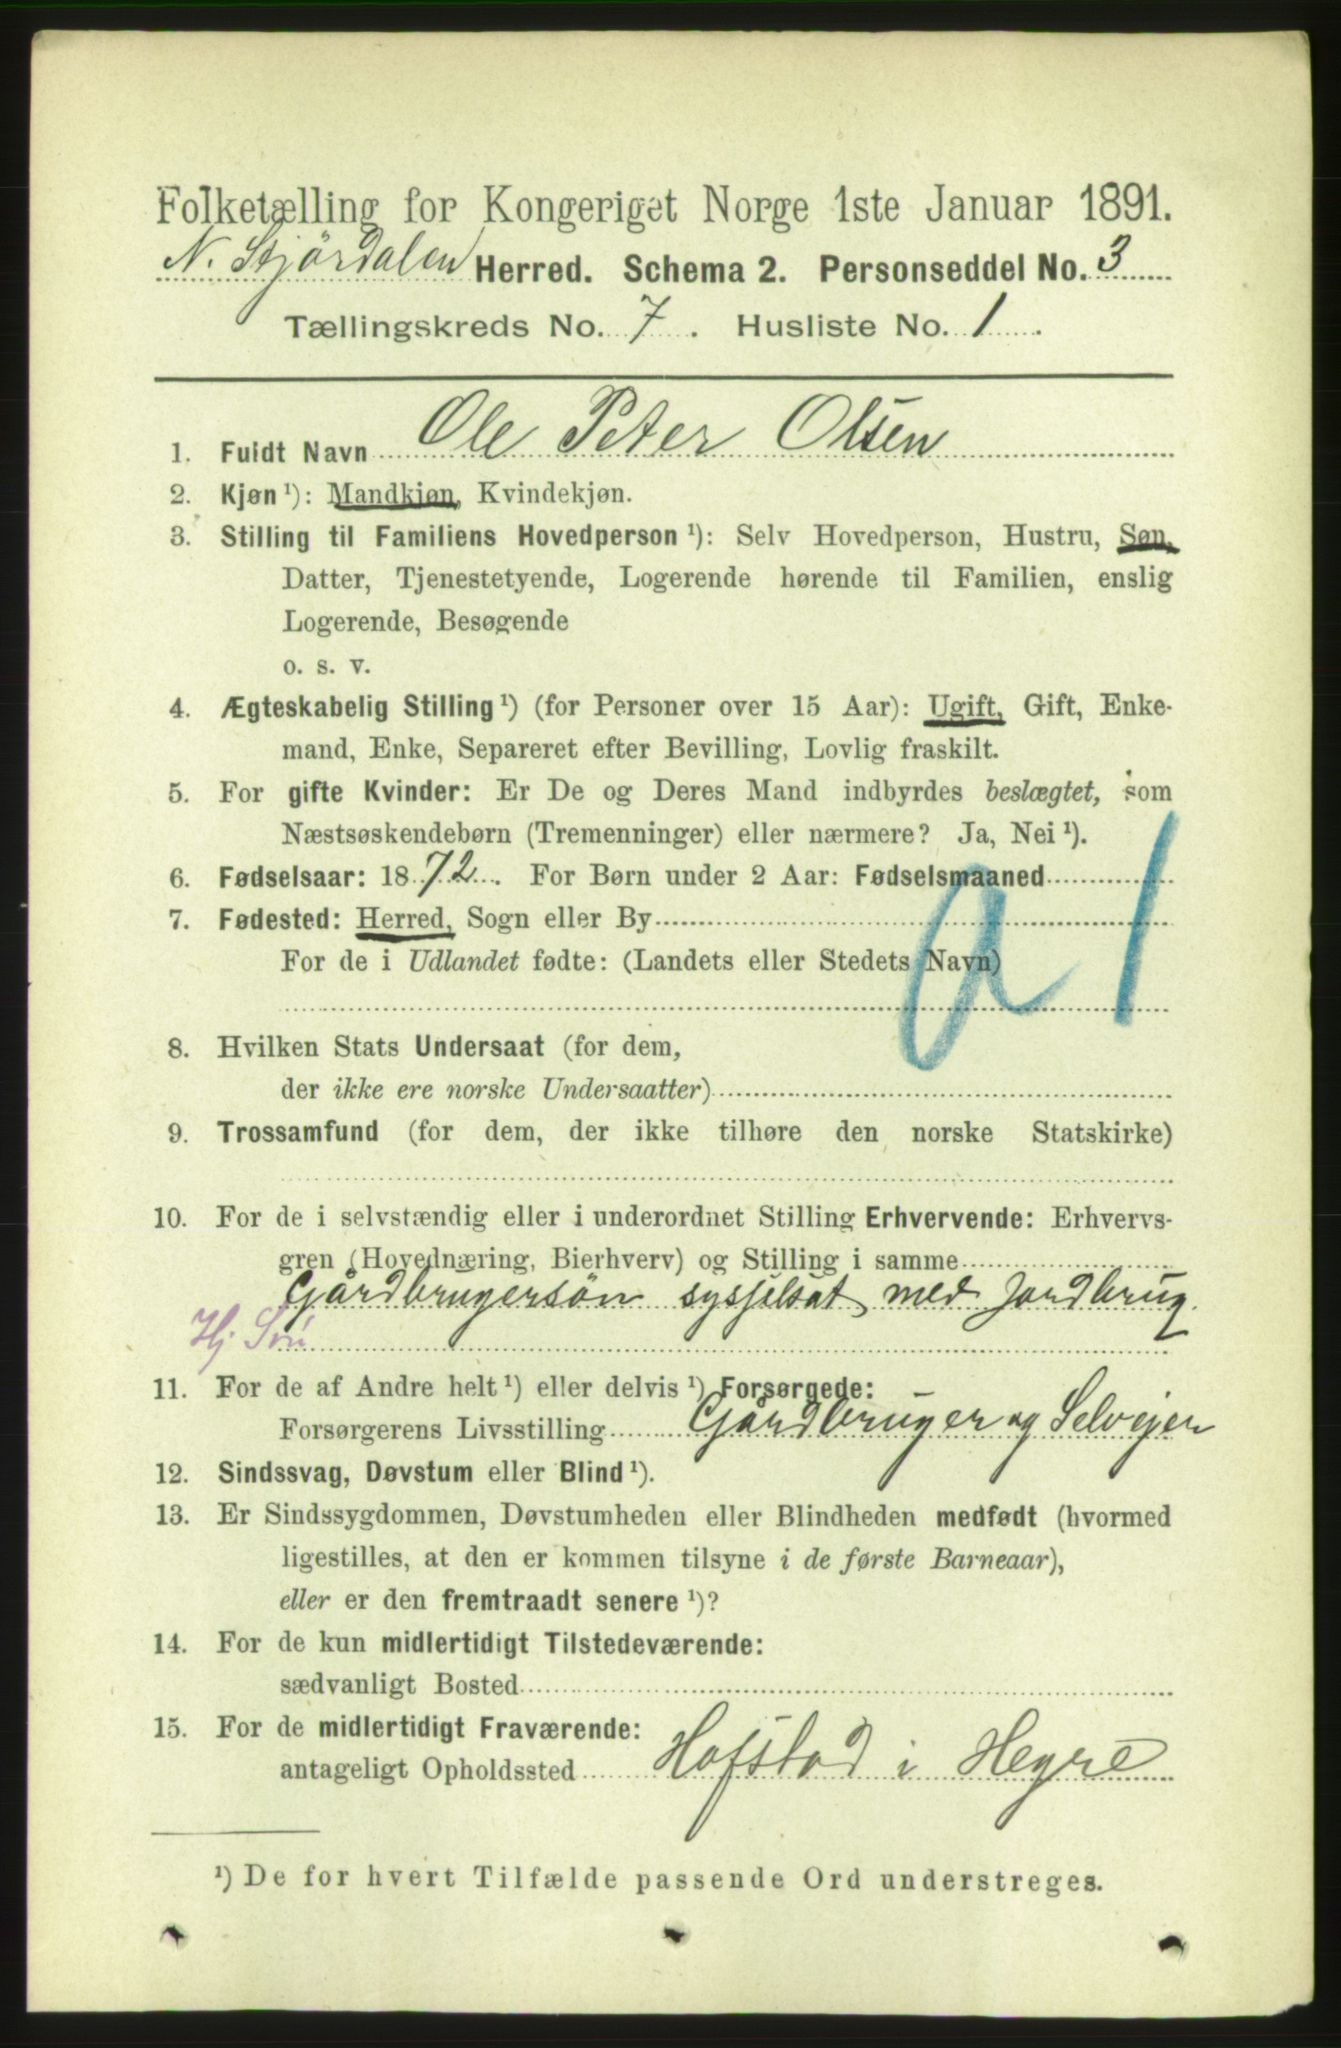 Folketælling for Kongeriget Norge 1ste Januar 1891.
N. Stjørdalen Herred. Schema 2. Personseddel No. 3
Tællingskreds No. 7. Husliste No. 1.
1. Fuldt Navn Ole Peter Olsen
2. Kjøn ¹): Mandkjøn, Kvindekjøn.
3. Stilling til Familiens Hovedperson ¹): Selv Hovedperson, Hustru, Søn,
Datter, Tjenestetyende, Logerende hørende til Familien, enslig
Logerende, Besøgende
o. s. v.
4. Ægteskabelig Stilling ¹) (for Personer over 15 Aar): Ugift, Gift, Enke-
mand, Enke, Separeret efter Bevilling, Lovlig fraskilt.
5. For gifte Kvinder: Er De og Deres Mand indbyrdes beslægtet, som
Næstsøskendebørn (Tremenninger) eller nærmere? Ja, Nei ¹).
6. Fødselsaar: 1872. For Børn under 2 Aar: Fødselsmaaned
7. Fødested: Herred, Sogn eller By
a 1
For de i Udlandet fødte: (Landets eller Stedets Navn)
8. Hvilken Stats Undersaat (for dem,
der ikke ere norske Undersaatter)
9. Trossamfund (for dem, der ikke tilhøre den norske Statskirke)
10. For de i selvstændig eller i underordnet Stilling Erhvervende: Erhvervs-
gren (Hovednæring, Bierhverv) og Stilling i samme
Gårdbrugersön sysselsat med Jordbrug.
Hj. Søn
11. For de af Andre helt ¹) eller delvis ¹) Forsørgede:
Forsørgerens Livsstilling Gårdbruger og Selvejer
12. Sindssvag, Døvstum eller Blind ¹).
13. Er Sindssygdommen, Døvstumheden eller Blindheden medfødt (hvormed
ligestilles, at den er kommen tilsyne i de første Barneaar),
eller er den fremtraadt senere ¹)?
14. For de kun midlertidigt Tilstedeværende:
sædvanligt Bosted
15. For de midlertidigt Fraværende:
antageligt Opholdssted Hofstad i Hegre
¹) De for hvert Tilfælde passende Ord understreges.